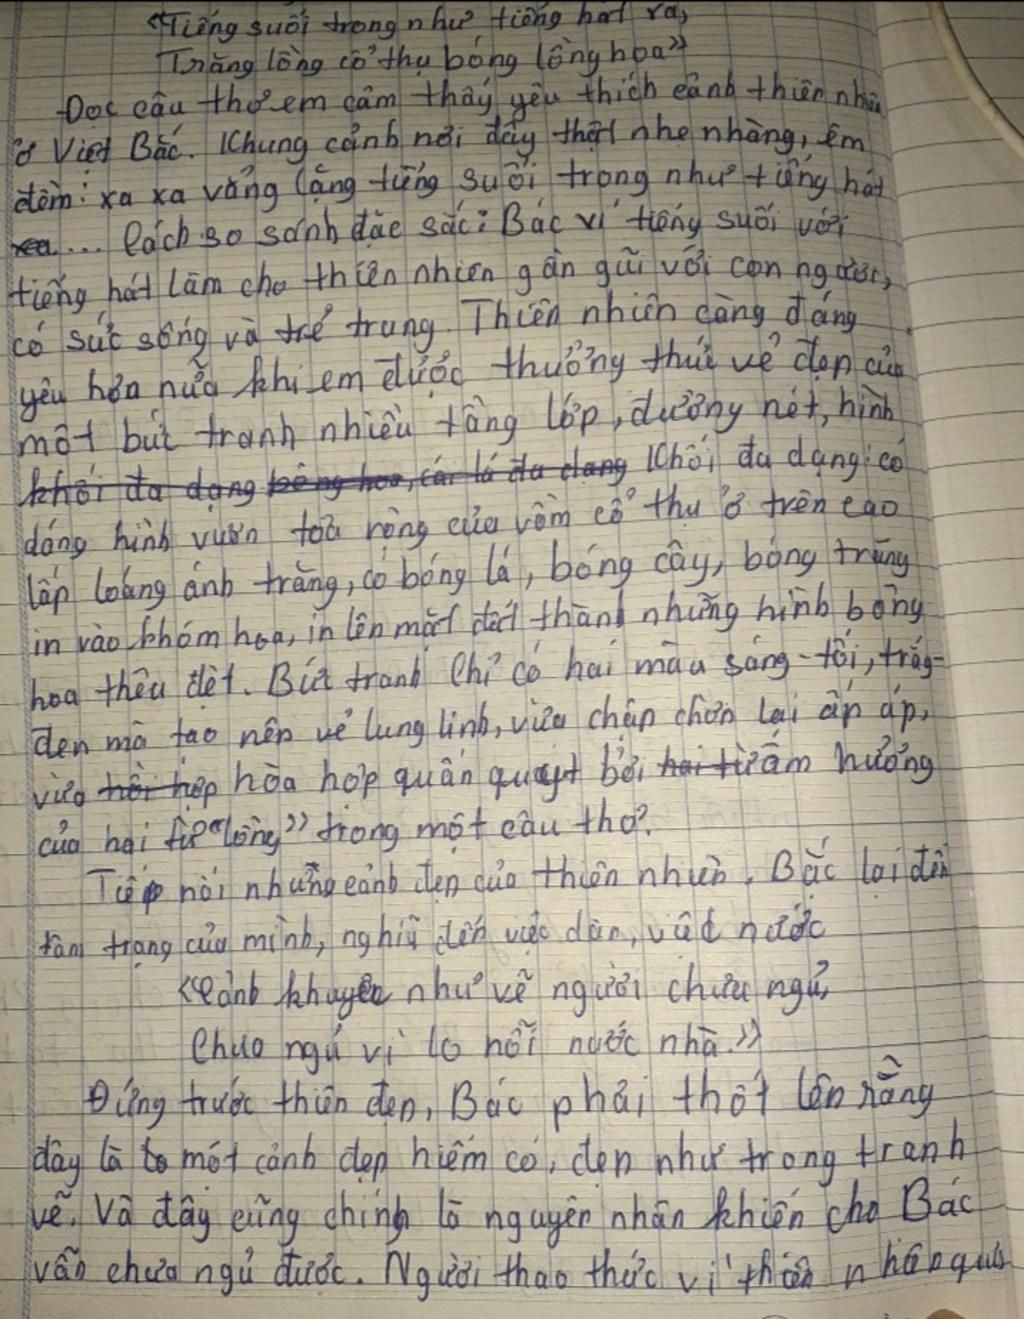 "Tiếng suối trong như tiếng hát xa,
Trăng lồng cổ thụ bóng lồng hoa"
Đọc câu thơ em cảm thấy yêu thích cảnh thiên nhiên
ở Việt Bắc. Khung cảnh nơi đây thật nhẹ nhàng, êm
đềm: xa xa vẳng lặng tiếng suối trong như tiếng hát
xa... Cách so sánh đặc sắc: Bác ví tiếng suối với
tiếng hát làm cho thiên nhiên gần gũi với con người,
có sức sống và trẻ trung. Thiên nhiên càng đáng
yêu hơn nữa khi em được thưởng thức vẻ đẹp của
một bức tranh nhiều tầng lớp, đường nét, hình
khối đa dạng bông hoa, cái lá đa dạng khối đa dạng: có
dáng hình vươn toả rộng của vòm cổ thụ ở trên cao
lấp loáng ánh trăng, có bóng lá, bóng cây, bóng trăng
in vào khóm hoa, in lên mặt đất thành những hình bông
hoa thêu dệt. Bức tranh chỉ có hai màu sáng-tối, trắng-
đen mà tạo nên vẻ lung linh, vừa chập chờn lại ấm áp,
vừa hòa hợp quấn quýt bởi hai từ âm hưởng
của hai từ "lồng" trong một câu thơ.
Tiếp nối những cảnh đẹp của thiên nhiên, Bác lại đến
tâm trạng của mình, nghĩ đến việc dân, việc nước
"Cảnh khuya như vẽ người chưa ngủ,
Chưa ngủ vì lo nỗi nước nhà."
Đứng trước thiên đẹp, Bác phải thốt lên rằng
đây là một cảnh đẹp hiếm có, đẹp như trong tranh
vẽ. Và đây cũng chính là nguyên nhân khiến cho Bác
vẫn chưa ngủ được. Người thao thức vì thiên nhiên quá